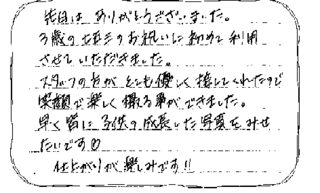 先日は ありがとうございました。
3歳の七五三のお祝いに初めて利用
させていただきました。
スタッフの方がとても優しく接してくれたので
笑顔で楽しく撮る事ができました。
早く皆に子供の成長した写真をみせ
たいです♡
仕上がりが楽しみです!!